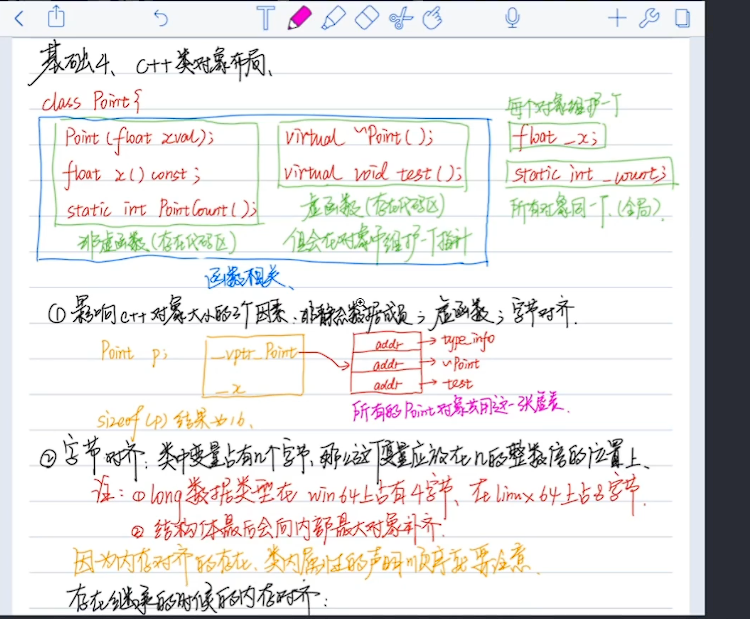 基础4、C++类对象布局、
class Point{
Point(float xval);
float x() const;
static int PointCount();
非虚函数(存在代码区)
virtual ~Point();
virtual void test();
虚函数(存在代码区)
但会在对象中维护一个指针
函数相关、
每个对象维护一个
float _x;
static int _count;
所有对象同一个.(全局)
①影响c++对象大小的3个因素:非静态数据成员;虚函数;字节对齐.
Point p;
__vptr_Point
_x
addr → type_info
addr → ~Point
addr → test
sizeof(p)结果为16.
所有的Point对象共用这一张虚表.
②字节对齐:类中变量占有n个字节、那么这个变量应放在n的整数倍的位置上、
注:①long数据类型在win64上占有4字节、在linux64上占8字节.
②结构体最后会向内部最大对象补齐.
因为内存对齐的存在、类内属性的声明顺序就要注意.
存在继承的时候的内存对齐: